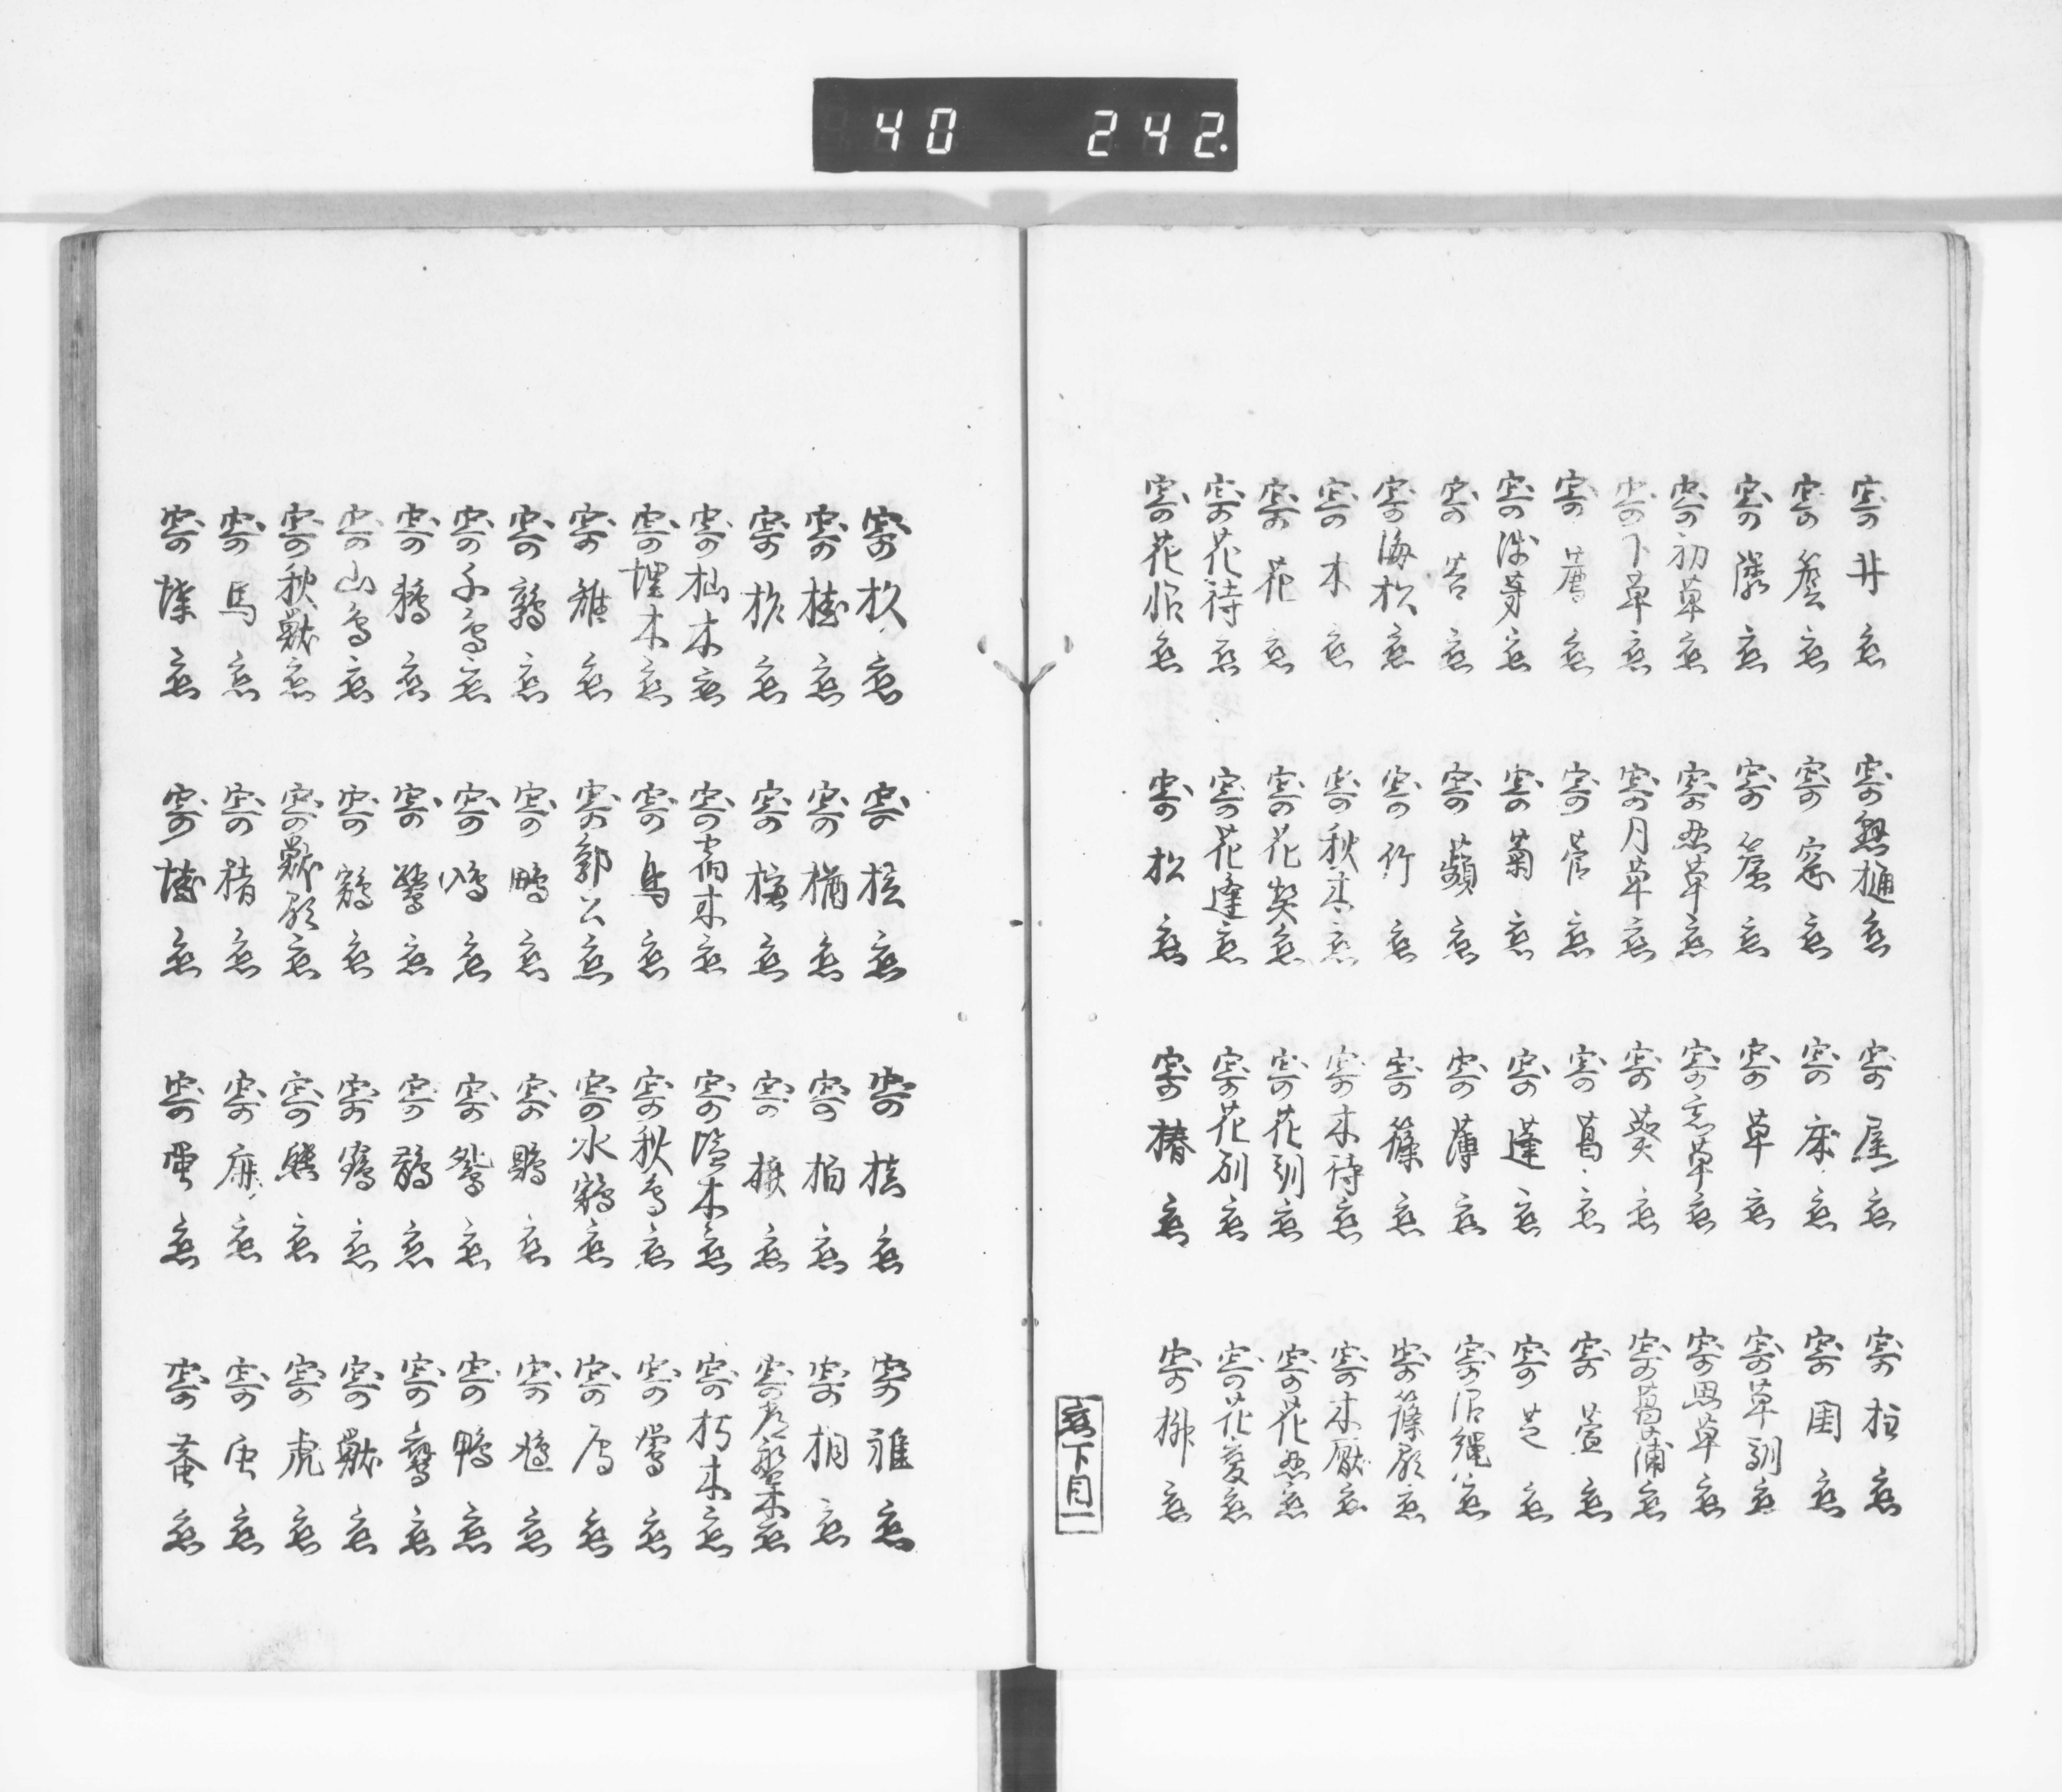 40 242.
寄井恋 寄懸樋恋 寄屋恋 寄柱恋
寄簷恋 寄窓恋 寄床恋 寄閨恋
寄隣恋 寄簾恋 寄草恋 寄草馴恋
寄初草恋 寄忍草恋 寄忘草恋 寄思草恋
寄下草恋 寄月草恋 寄葵恋 寄菖蒲恋
寄恋 寄菅恋 寄葛恋 寄萱恋
寄浅茅恋 寄菊恋 寄蓬恋 寄芝恋
寄苔恋 寄蘋恋 寄薄恋 寄沼縄恋
寄海松恋 寄竹恋 寄篠恋 寄篠顕恋
寄木恋 寄秋木恋 寄木待恋 寄木厭恋
寄花恋 寄花契恋 寄花馴恋 寄花忍恋
寄花待恋 寄花逢恋 寄花別恋 寄花変恋
寄花恨恋 寄松恋 寄椿恋 寄柳恋
恋下目一
寄杉恋 寄恋 寄槙恋 寄椎恋
寄桂恋 寄楢恋 寄柏恋 寄桐恋
寄恋 寄恋 寄恋 寄常盤木恋
寄杣木恋 寄宿木恋 寄塩木恋 寄朽木恋
寄埋木恋 寄鳥恋 寄秋鳥恋 寄鶯恋
寄雉恋 寄郭公恋 寄水鶏恋 寄雁恋
寄鶉恋 寄鴫恋 寄鵙恋 寄恋
寄千鳥恋 寄鳰恋 寄鴛恋 寄鴨恋
寄恋 寄鷺恋 寄鵲恋 寄鷹恋
寄山鳥恋 寄鶏恋 寄鶴恋 寄獣恋
寄秋獣恋 寄獣顕恋 寄熊恋 寄虎恋
寄馬恋 寄猪恋 寄鹿恋 寄虫恋
寄蝶恋 寄恋 寄恋 寄恋